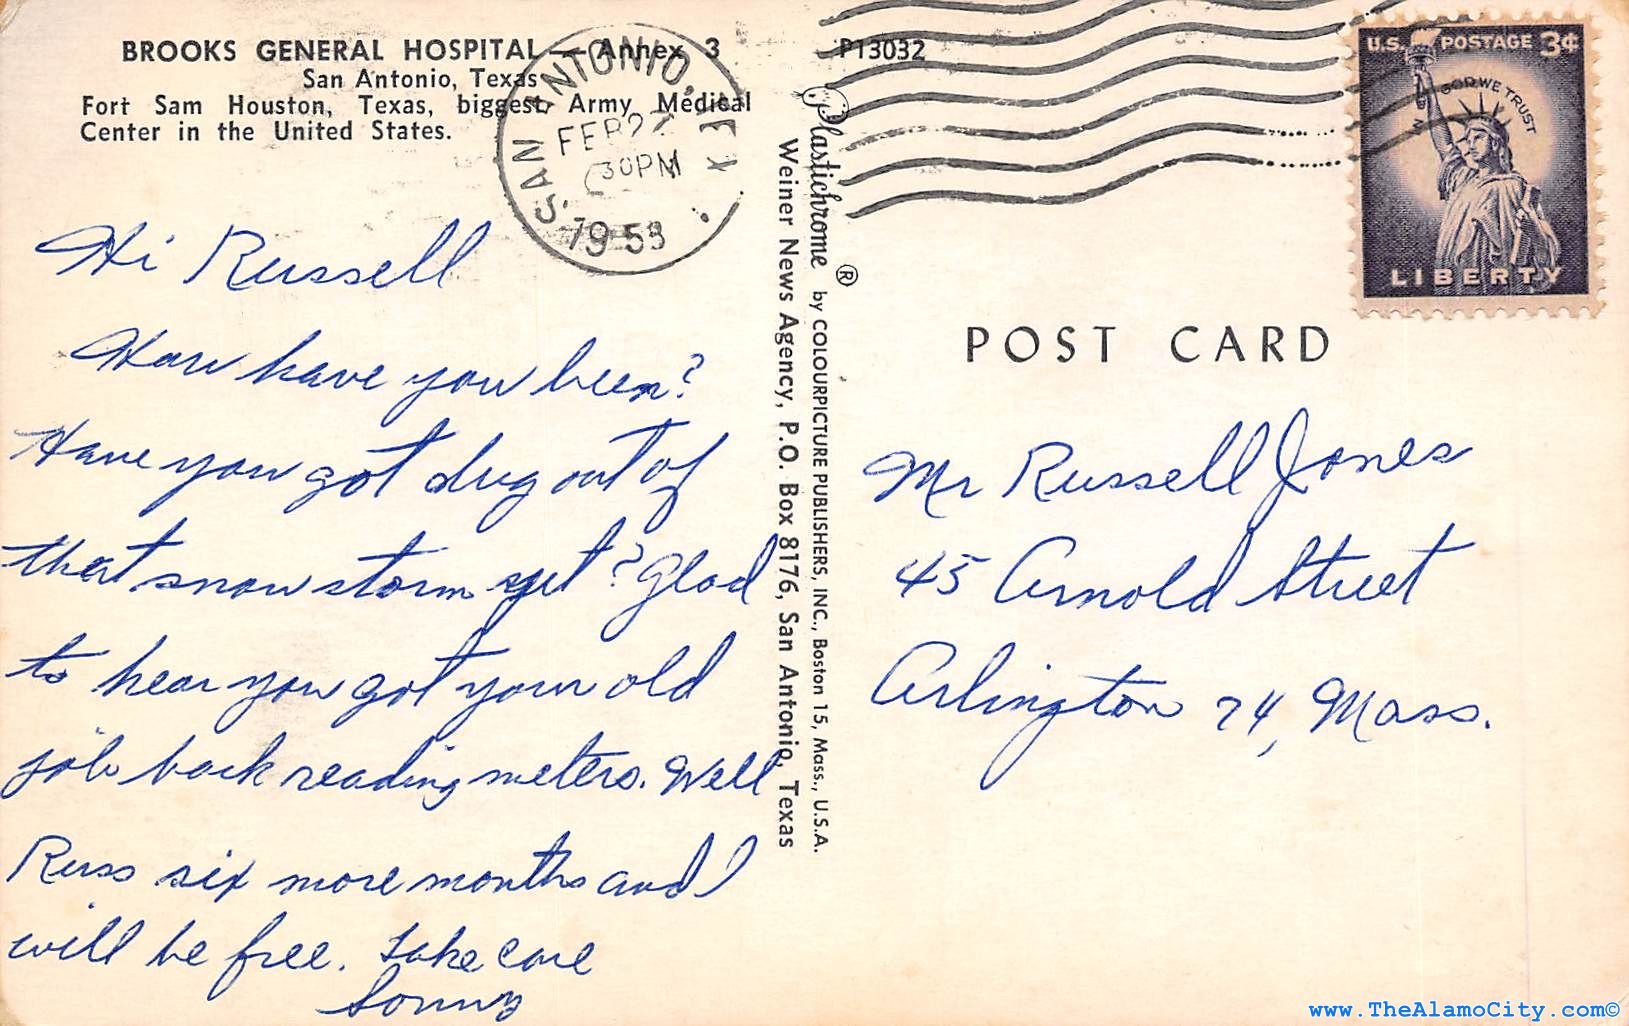 BROOKS GENERAL HOSPITAL — Annex 3
San Antonio, Texas
Fort Sam Houston, Texas, biggest Army Medical
Center in the United States.
SAN ANTONIO, TEX.
FEB 27
30 PM
1958
P13032
U.S. POSTAGE 3¢
IN GOD WE TRUST
LIBERTY
Hi Russell
How have you been?
Have you got dug out of
that snow storm yet? Glad
to hear you got your old
job back reading meters. Well
Russ six more months and I
will be free. Take care
Sonny
Weiner News Agency, P.O. Box 8176, San Antonio, Texas
Plastichrome ® by COLOURPICTURE PUBLISHERS, INC., Boston 15, Mass., U.S.A.
POST CARD
Mr Russell Jones
45 Arnold Street
Arlington 74, Mass.
www.TheAlamoCity.com©